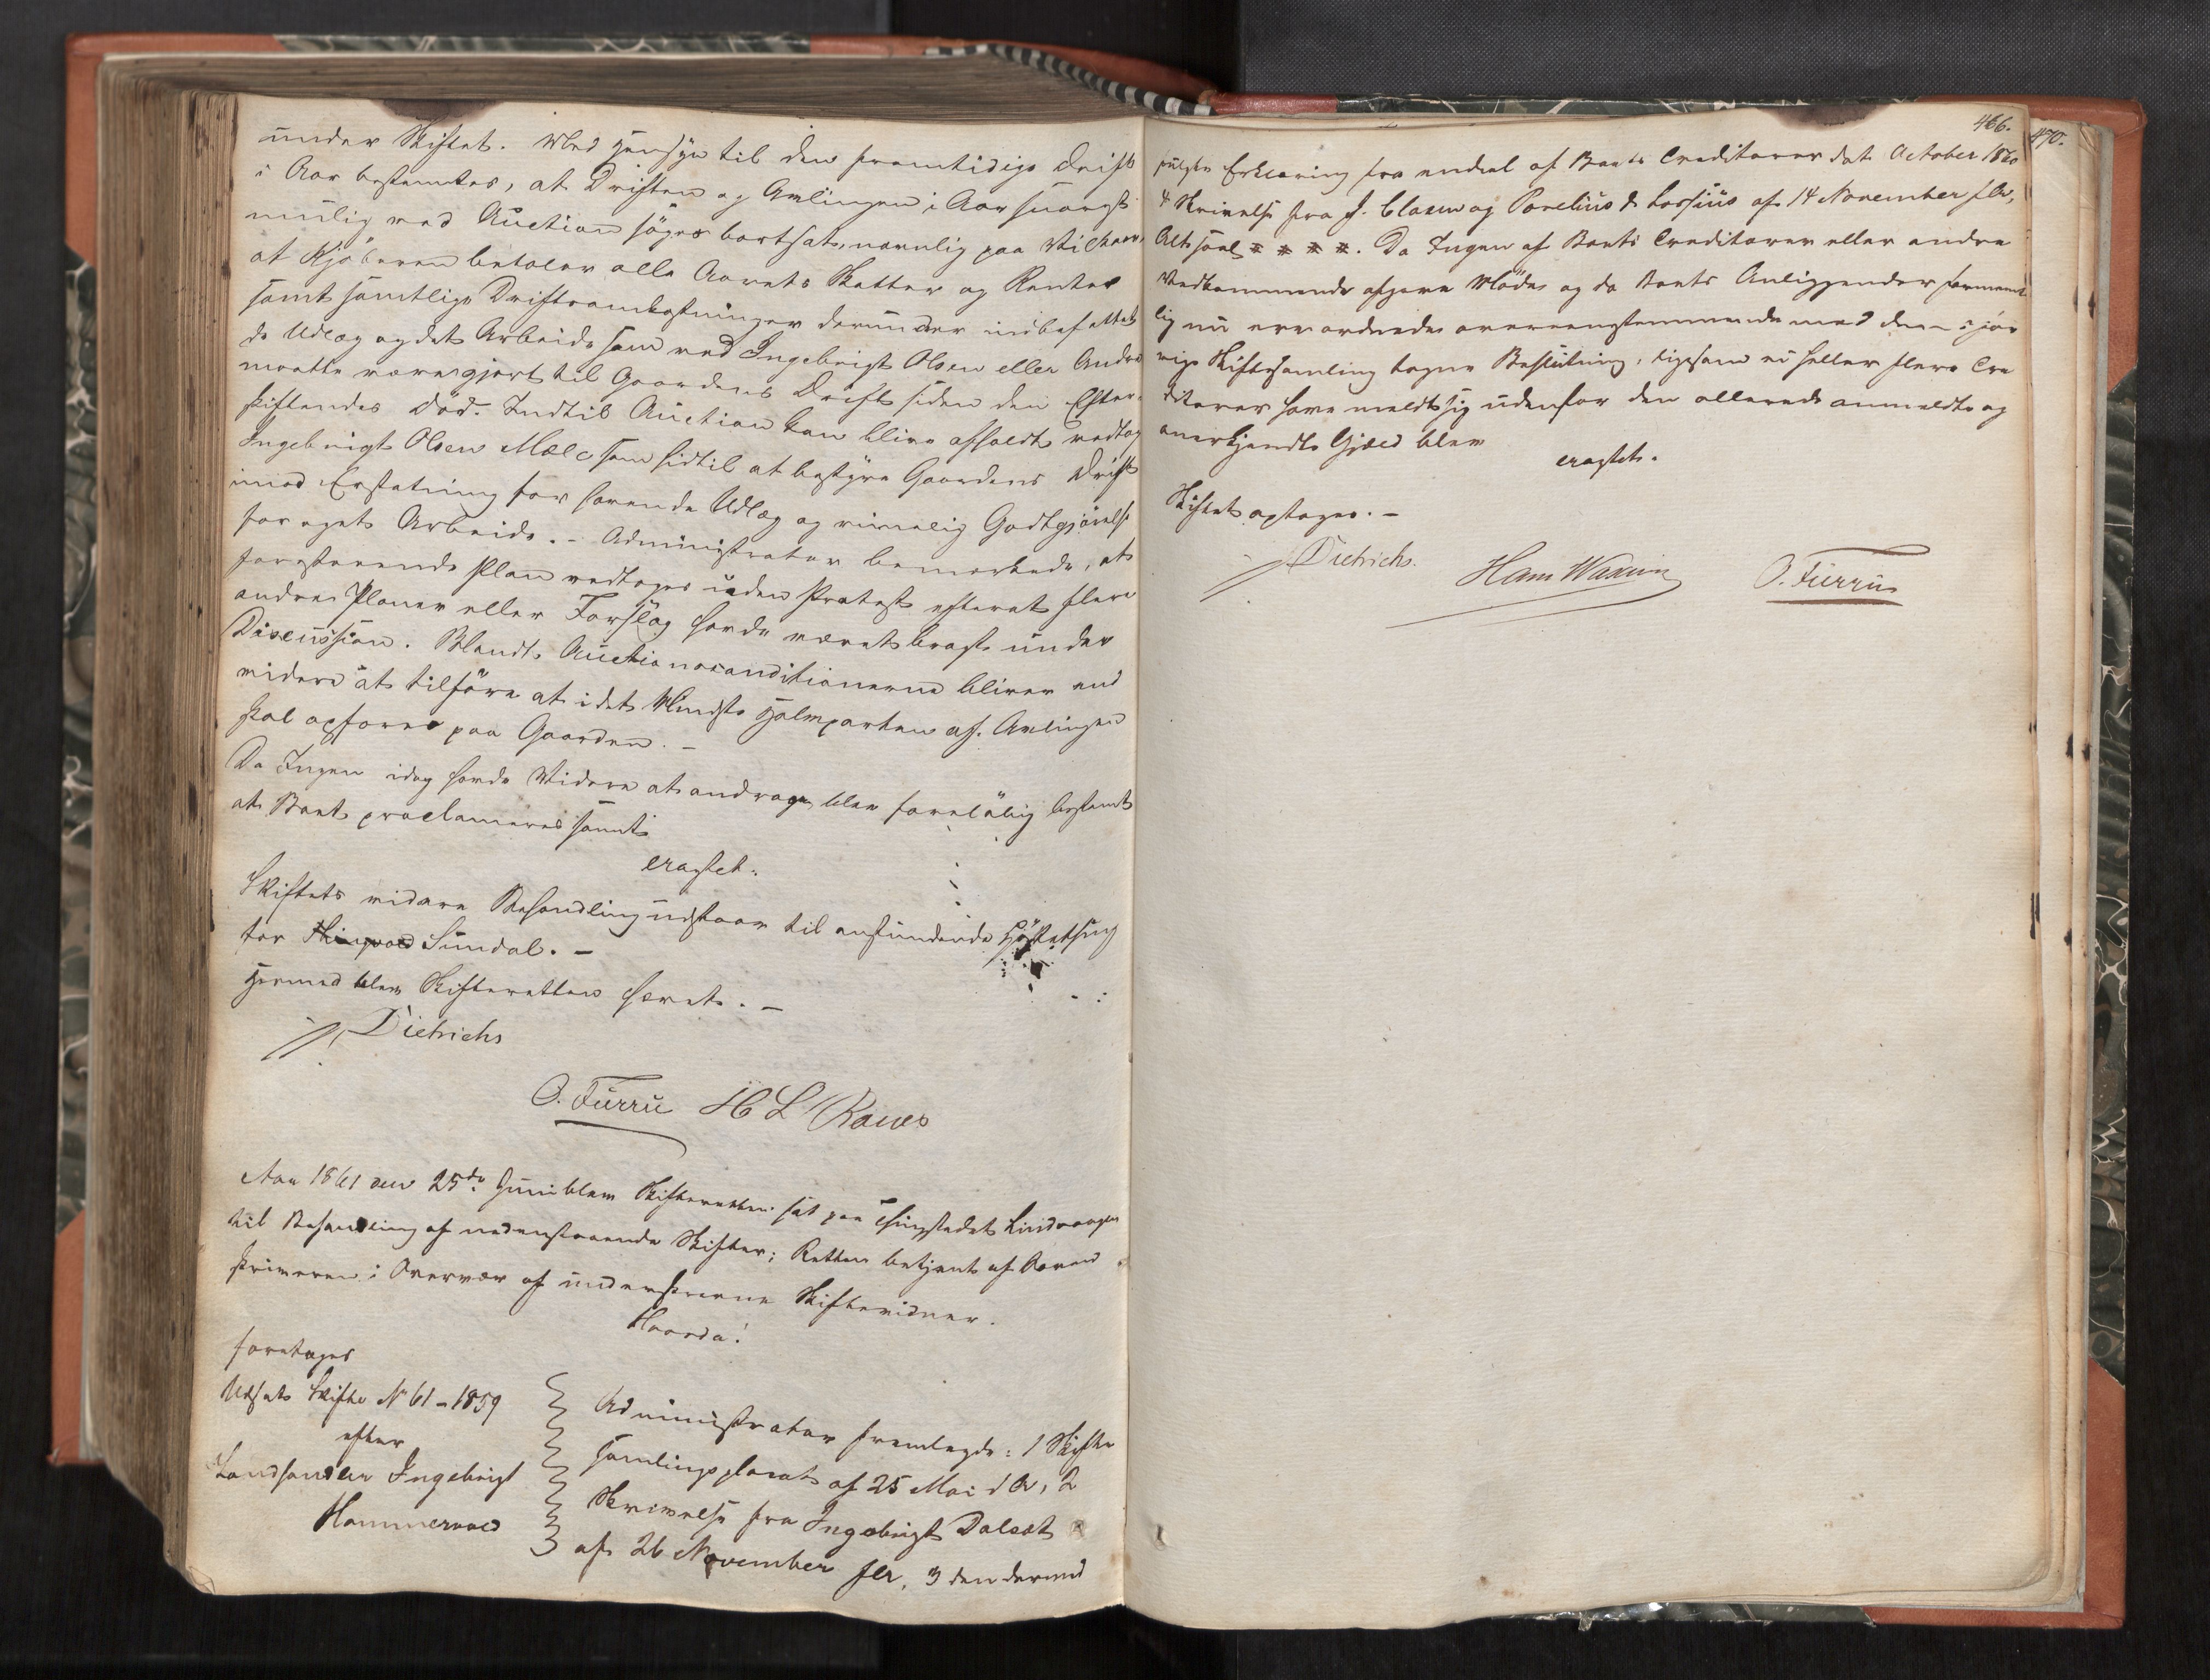 under Skiftet. Med Hensyn til den fremtidige Drift
i Aar bestemtes, at Driften og Avlingen i Aar snarest
mulig ved Auction søges bortsat, navnlig paa Vilkaar,
at Kjøberen betaler alle Aarets Skatter og Renter
samt samtlige Driftsomkostninger derunder indbefattet
de Udlæg og det Arbeide som ved Ingebrigt Olsen eller Andre
maatte være gjort til Gaardens Drift siden den Efter-
skiftendes Død. Indtil Auction kan blive afholdt vedtog
Ingebrigt Olsen Mæle som hidtil at bestyre Gaardens Drift
imod Erstatning for havende Udlæg og rimelig Godtgjørelse
for eget Arbeide. - Administrator bemærkede, at
foregaaende Plan vedtoges uden Protest efterat flere
andre Planer eller Forslag havde været bragt under
Discussion. Blandt Auctionsconditionerne bliver end
videre at tilføre at i det Mindste Halvparten af Avlingen
skal opfores paa Gaarden. -
Da Ingen idag havde Videre at andrage blev foreløbig bestemt
at Boet proclameres samt
eragtet:
Skiftets videre Behandling udstaar til anstundende Høstething
for Sundal. -
Hermed blev Skifteretten hævet. -
Dietrichs
O. Furru H L Raues
Aar 1861 den 25de Juni blev Skifteretten sat paa Thingstedet Lindvaagen
til Behandling af nedenstaaende Skifter; Retten betjent af Soren
skriveren i Overvær af underskrevne Skiftevidner.
Hvorda!
foretages
Udsat Skifte No 61 - 1859
efter
Landhandler Ingebrigt
Hammervold
Administrator fremlagde: 1 Skifte
samlingsplacat af 25 Mai d A, 2
Skrivelse fra Ingebrigt Dalset
af 26 November f A, 3 den dermed
466.
470.
fulgte Erklæring fra endel af Boets Creditorer dat October 1860
4 Skrivelse fra J. Clausen og Parelius & Lossius af 14 November f Ar,
Alt saal. * * * *. Da Ingen af Boets Creditorer eller andre
Vedkommende afgave Møde og da Boets Anliggender forment
lig nu ere ordnede overeensstemmende med den i for
rige Skiftesamling tagne Beslutning, ligesom ei heller flere Cre
ditorer have meldt sig udenfor den allerede anmeldte og
anerkjendte Gjæld blev
eragtet.
Skiftet optages. -
Dietrichs. Hans Waxvin O. Furru